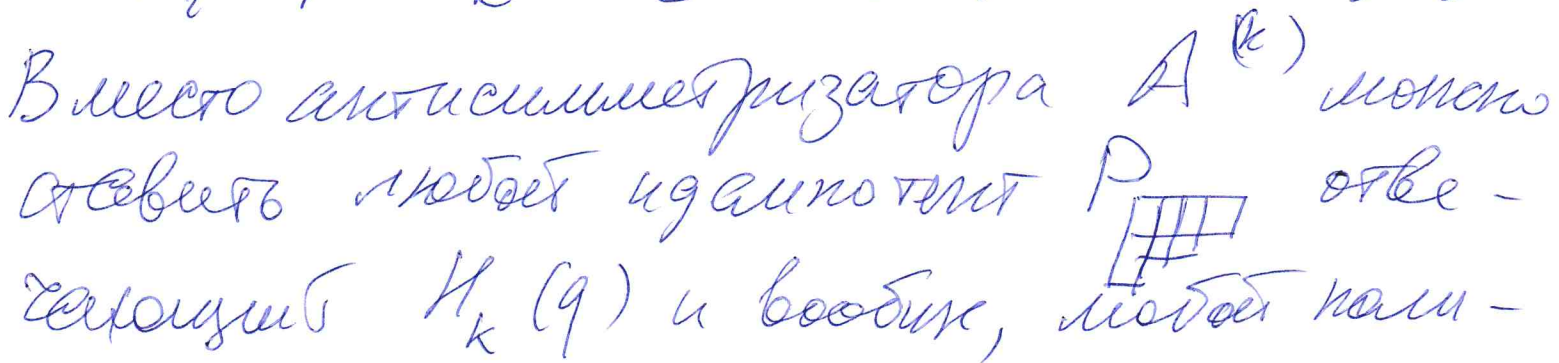 Вместо антисимметризатора A^(k) можно
ставить любой идемпотент P отве-
чающий H_k(q) и вообще, любой поли-